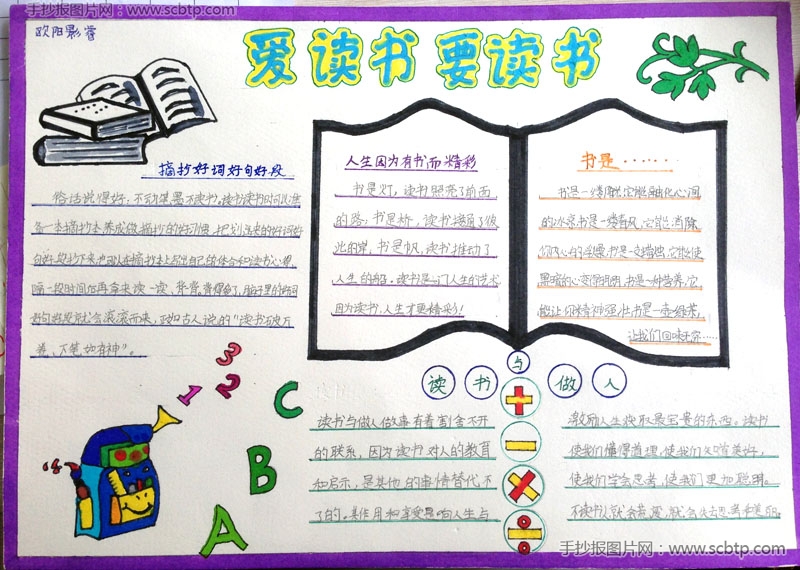 手抄报图片网：www.scbtp.com
欧阳影睿
爱读书 要读书
摘抄好词好句好段
俗话说得好，不动笔墨不读书。读书读书时可以准
备一本摘抄本，养成做摘抄的好习惯，把划出来的好词好
句好段抄下来，也可以在摘抄本上写出自己的体会和读书心得。
隔一段时间后再拿来读一读，背背。背得多了，脑子里的好词
好句好段就会滚滚而来，正如古人说的“读书破万
卷，下笔如有神”。
人生因为有书而精彩
书是灯，读书照亮了前面
的路；书是桥，读书接通了彼
此的岸，书是帆，读书推动了
人生的船。读书是一门人生的艺术，
因为读书，人生才更精彩！
书是……
书是一缕阳光，它能融化心间
的冰凉，书是一缕春风，它能消除
你内心的尘埃，书是一支蜡烛，它能使
黑暗的心变得明朗，书是一种营养，它
能让你精神强壮，书是一壶绿茶，
让我们回味无穷……
读书与做人
读书与做人做事有着割舍不开
的联系，因为读书对人的教育
和启示，是其他的事情替代不
了的。其作用和享受影响人生与
激励人生获取最宝贵的东西。读书
使我们懂得道理，使我们知道美好，
使我们学会思考，使我们更加聪明。
不读书人就会荒芜，就会失去思考和美丽。
1 2 3
A B C
手抄报图片网：www.scbtp.com